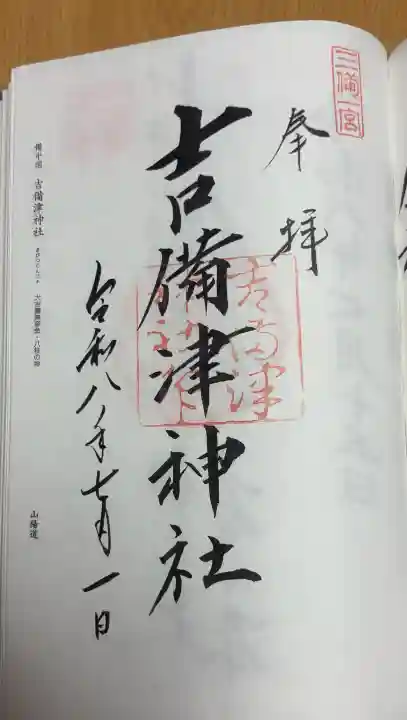 三備一宮
奉拝
吉備津神社
吉備津
令和八年七月一日
備中国 吉備津神社 きびつじんじゃ
山陽道